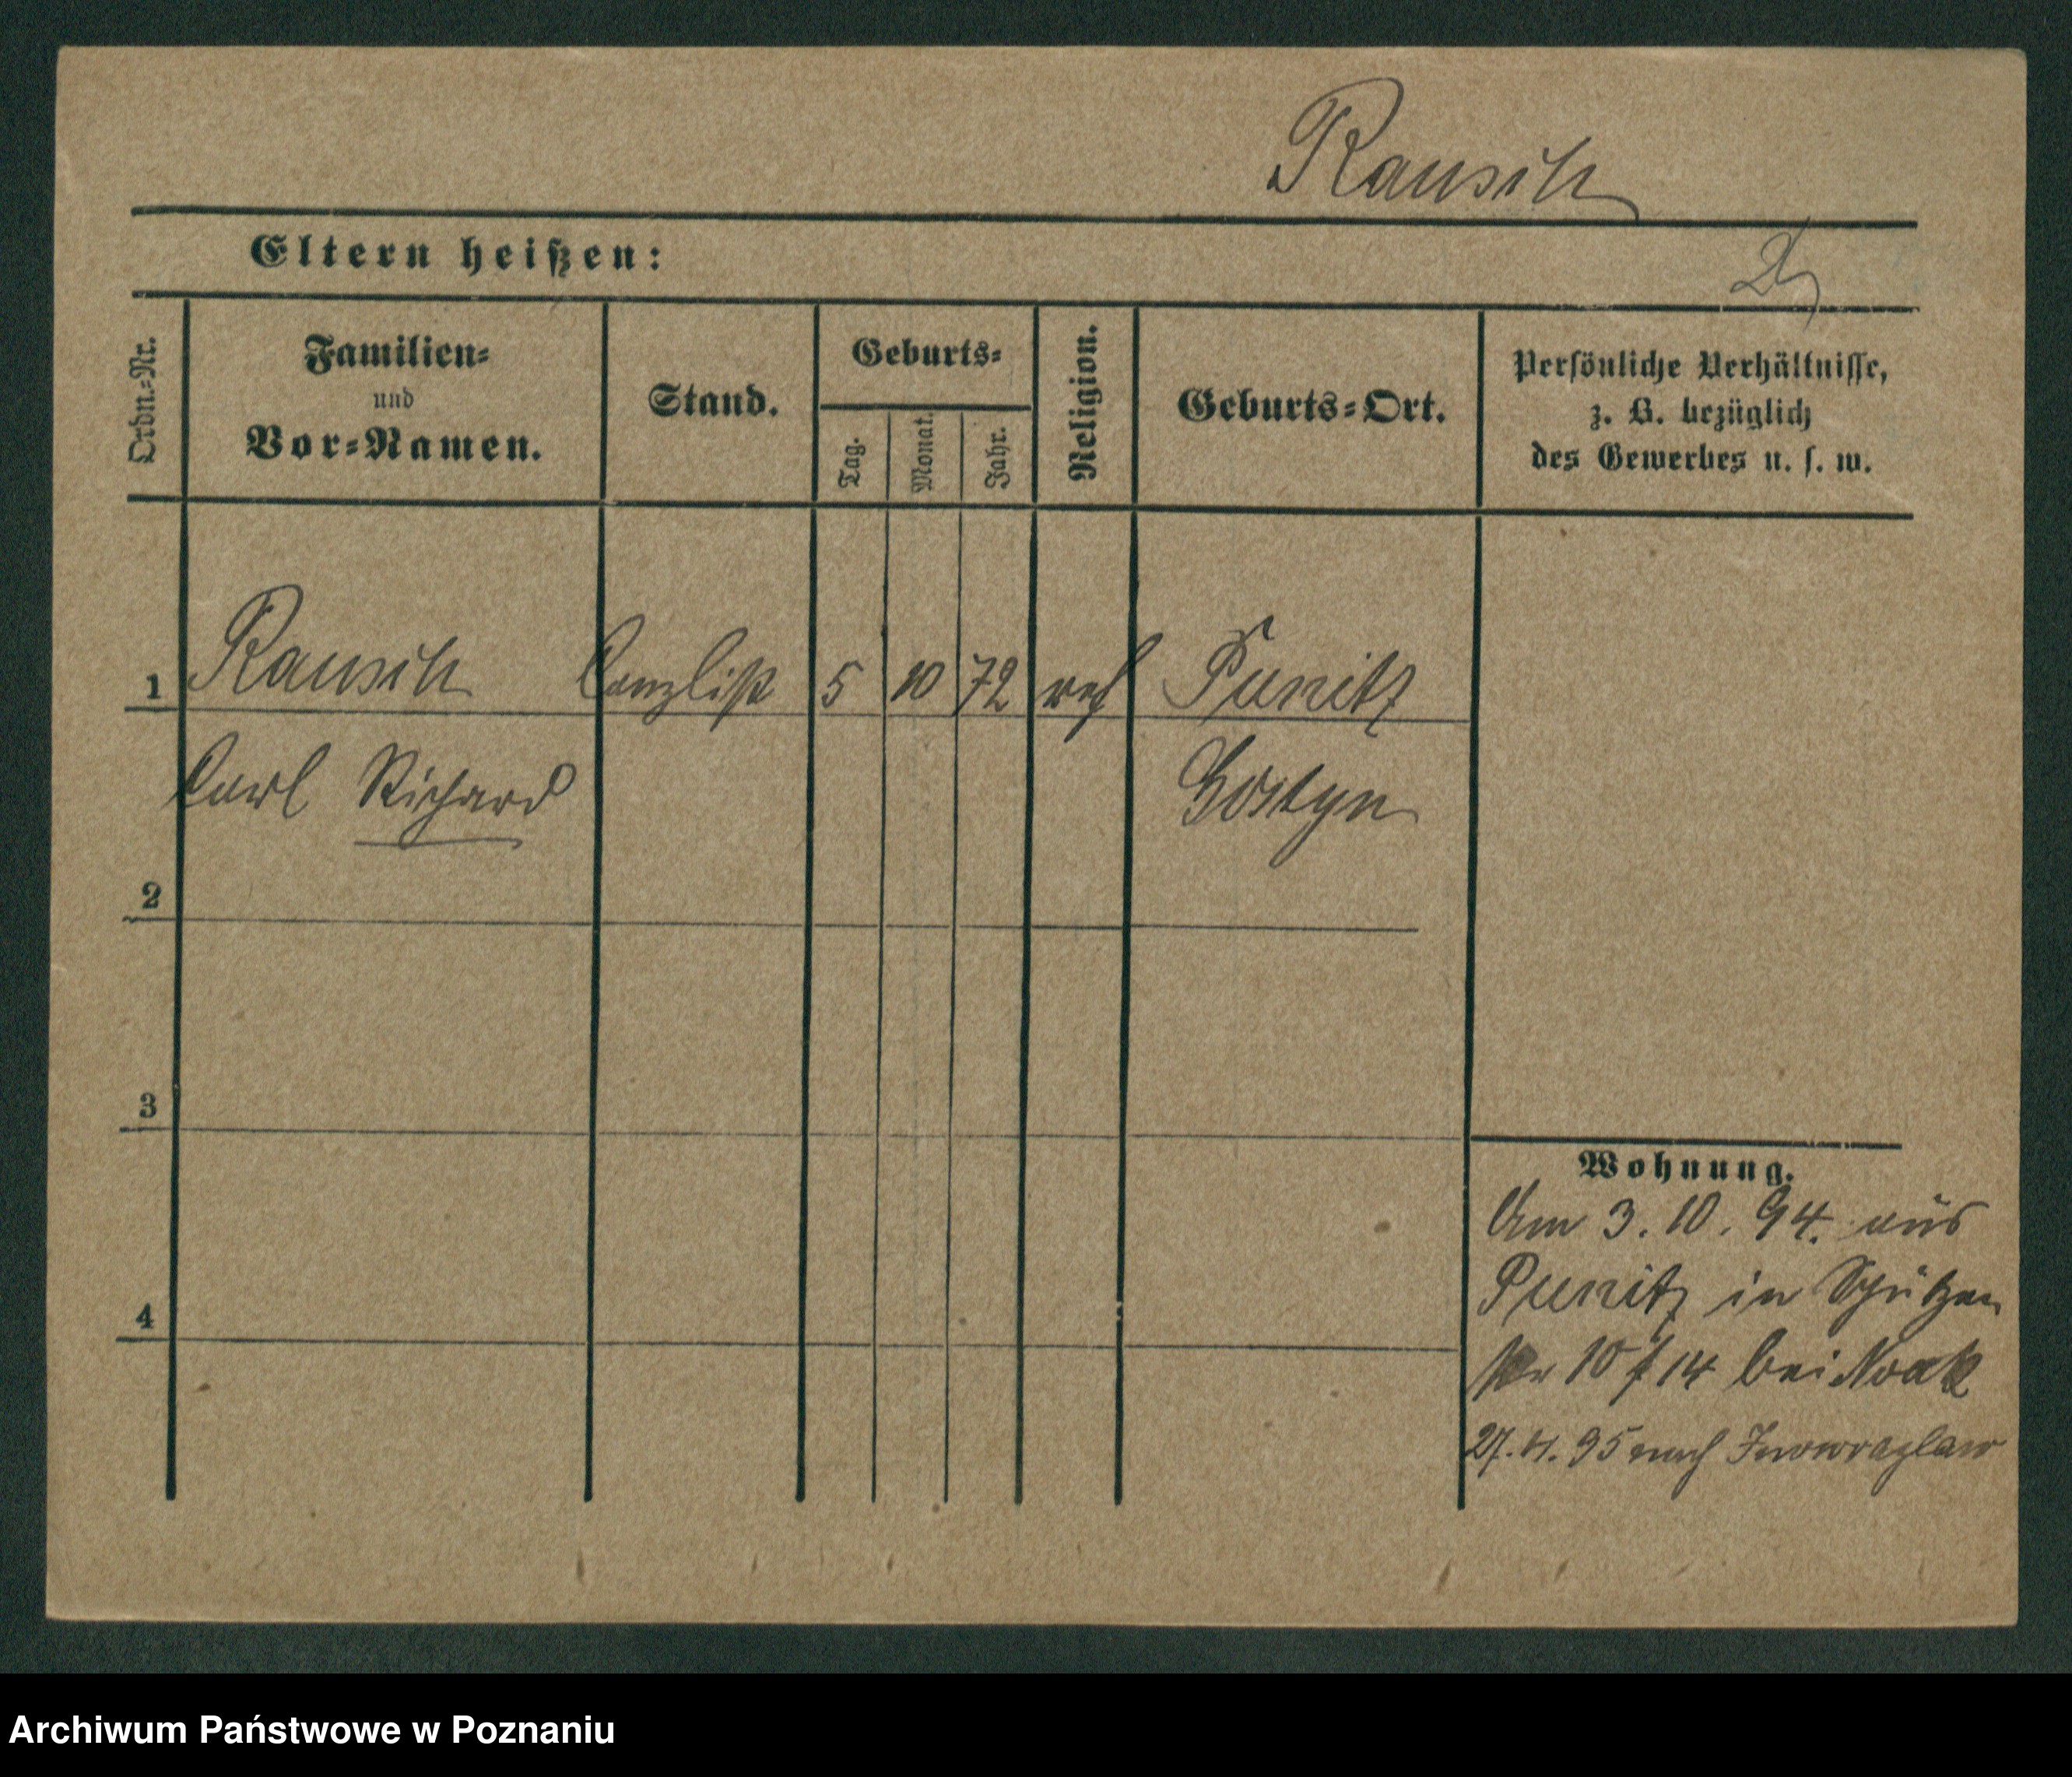 Rausch
Eltern heißen:
Ordn.-Nr.
Familien-
und
Vor-Namen.
Stand.
Geburts-
Tag.
Monat.
Jahr.
Religion.
Geburts-Ort.
Persönliche Verhältnisse,
z. B. bezüglich
des Gewerbes u. s. w.
1 Rausch Canzlist 5 10 72 ref Punitz
Carl Richard Gostyn
2
3
4
Wohnung.
Am 3. 10. 94. aus
Punitz in Schützen
10 14 bei Noak
27. 95 nach Inowrazlaw
Archiwum Państwowe w Poznaniu